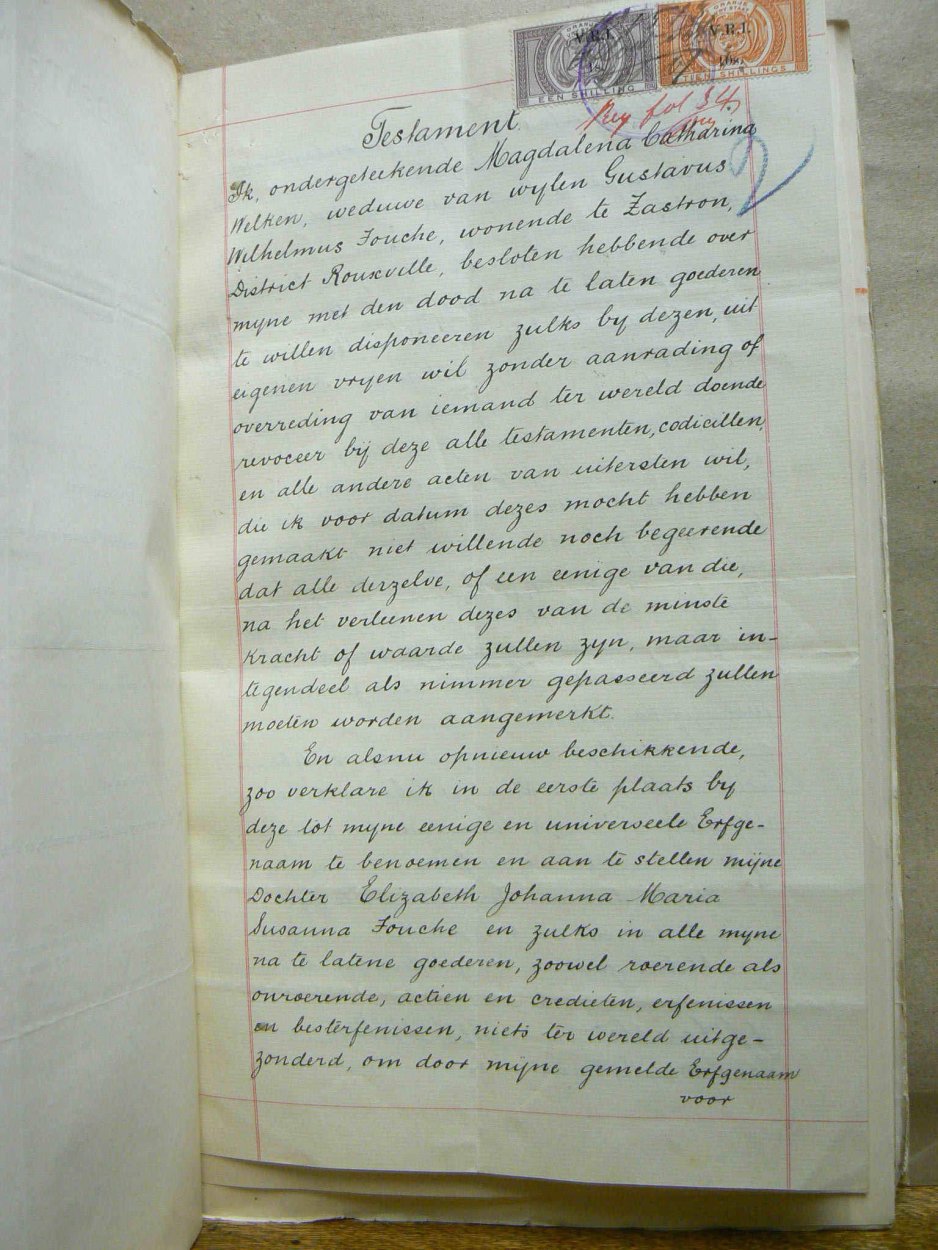 ORANJE
V.R.I.
EEN SHILLING
ORANJE
V.R.I.
TIEN SHILLINGS
Reg fol 34
2
Testament.
Ik, ondergeteekende Magdalena Catharina
Welken, weduwe van wylen Gustavus
Wilhelmus Fouche, wonende te Zastron,
District Rouxville, besloten hebbende over
myne met den dood na te laten goederen
te willen disponeeren zulks by dezen, uit
eigenen vryen wil zonder aanrading of
overreding van iemand ter wereld doende
revoceer bij deze alle testamenten, codicillen,
en alle andere acten van uitersten wil,
die ik voor datum dezes mocht hebben
gemaakt niet willende noch begeerende
dat alle derzelve, of een eenige van die,
na het verleenen dezes van de minste
kracht of waarde zullen zyn, maar in-
tegendeel als nimmer gepasseerd zullen
moeten worden aangemerkt.
En alsnu opnieuw beschikkende,
zoo verklare ik in de eerste plaats by
deze tot myne eenige en universeele Erfge-
naam te benoemen en aan te stellen mijne
Dochter Elizabeth Johanna Maria
Susanna Fouche en zulks in alle myne
na te latene goederen, zoowel roerende als
onroerende, actien en credieten, erfenissen
en besterfenissen, niets ter wereld uitge-
zonderd, om door mijne gemelde Erfgenaam
voor